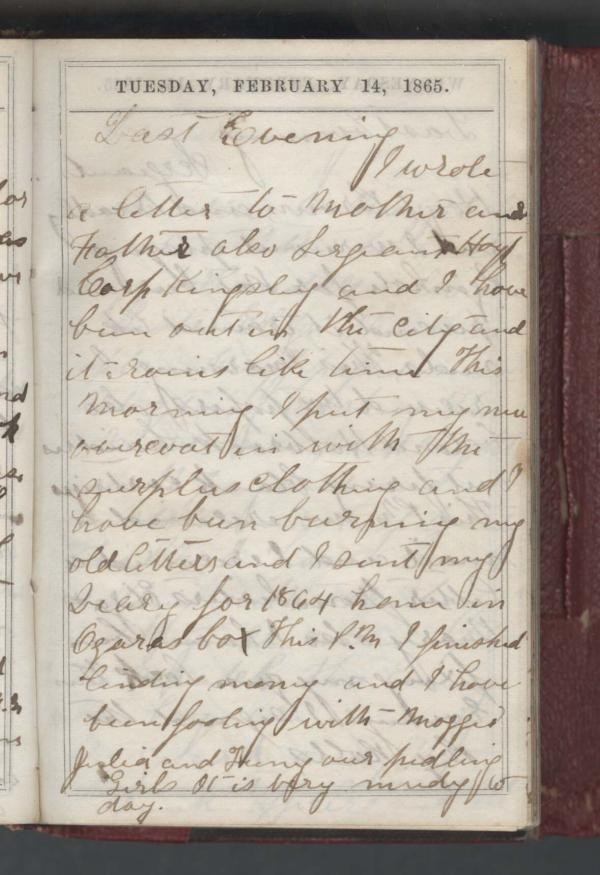 TUESDAY, FEBRUARY 14, 1865.
Last Evening
I wrote
a letter to Mother and
Father also Sergeant Hoyt
Corp Kingsley and I have
been out in the City and
it rains like time This
Morning I put my new
overcoat in with the
surplus clothing and I
have bun burning my
old letters and I sent my
Deary for 1864 home in
Ozaras box This P.M I finished
lending money and I have
been fooling with Maggie
Julia and our pedling
Girls It is very mudy to
day.